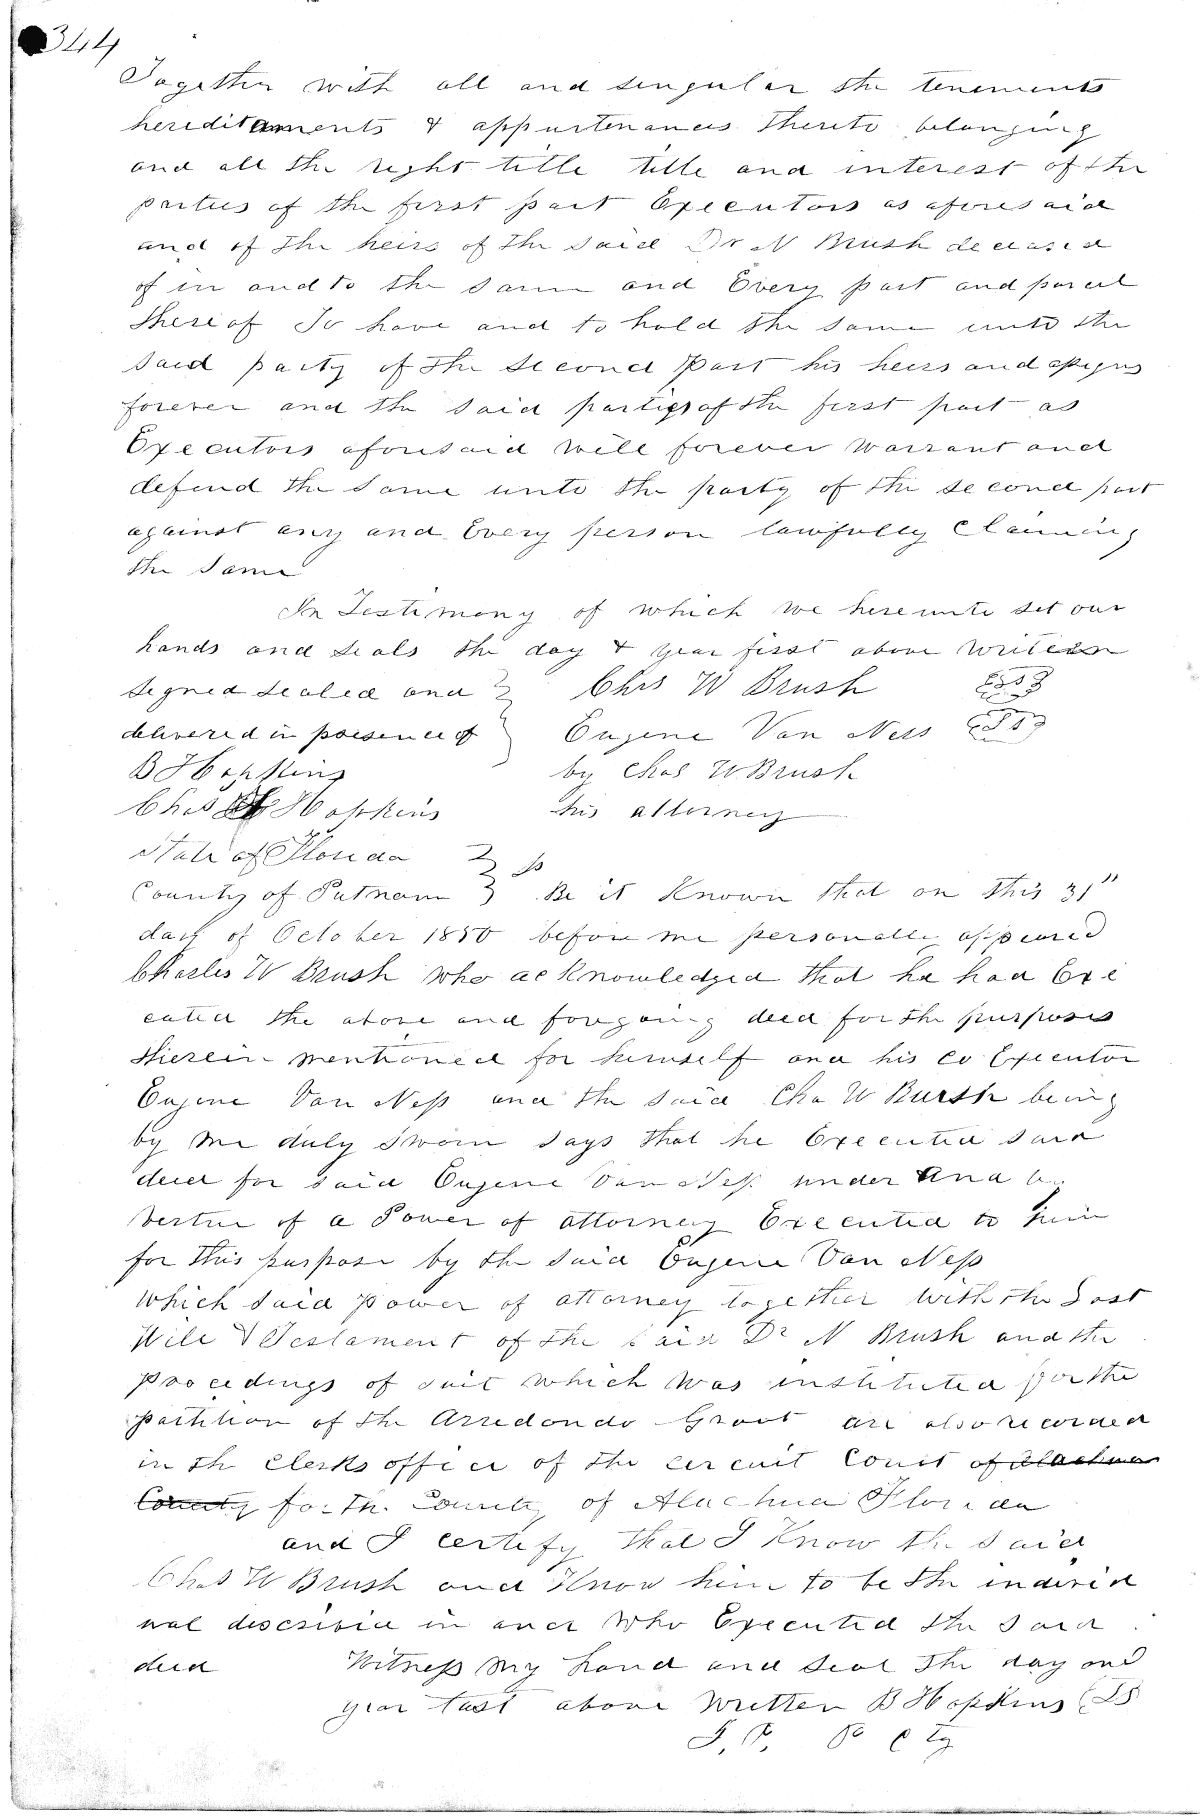 344
Together with all and singular the tenements
hereditaments & appurtenances thereto belonging
and all the right title title and interest of the
parties of the first part Executors as aforesaid
and of the heirs of the said Dr N Brush deceased
of in and to the same and Every part and parcel
thereof To have and to hold the same unto the
said party of the second part his heirs and assigns
forever and the said parties of the first part as
Executors aforesaid will forever warrant and
defend the same unto the party of the second part
against any and Every person lawfully Claiming
the same
In Testimony of which we hereunto set our
hands and seals the day & year first above written
Signed sealed and Chs W Brush
delivered in presence of Eugene Van Ness
B Hopkins by Chas W Brush
Chas Hopkins his attorney
State of Florida
County of Putnam Be it Known that on this 31"
day of October 1850 before me personally appeared
Charles W Brush who acknowledged that he had Exe
cuted the above and foregoing deed for the purposes
therein mentioned for himself and his co Executor
Eugene Van Ness and the said Cha W Bursh being
by me duly sworn says that he Executed said
deed for said Eugene Van Ness under and by
Vertue of a Power of attorney Executed to him
for this purpose by the said Eugene Van Ness
Which said power of attorney together with the Last
Will & Testament of the said Dr N Brush and the
procedings of suit which was instituted for the
partition of the Arredondo Grant are also recorded
in th Clerks office of the circuit Court of Alachua
County for th. County of Alachua Florida
and I certify that I Know the said
Chas W Brush and Know him to be the individ
ual described in and who Executed the said
deed Witness my hand and seal the day and
year last above written B Hopkins (LS
J. P. P C Ty